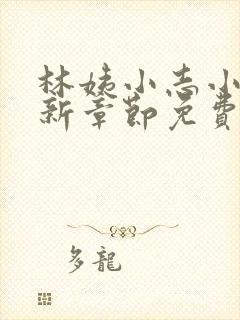 林姨小志小
新章節免費
多龍